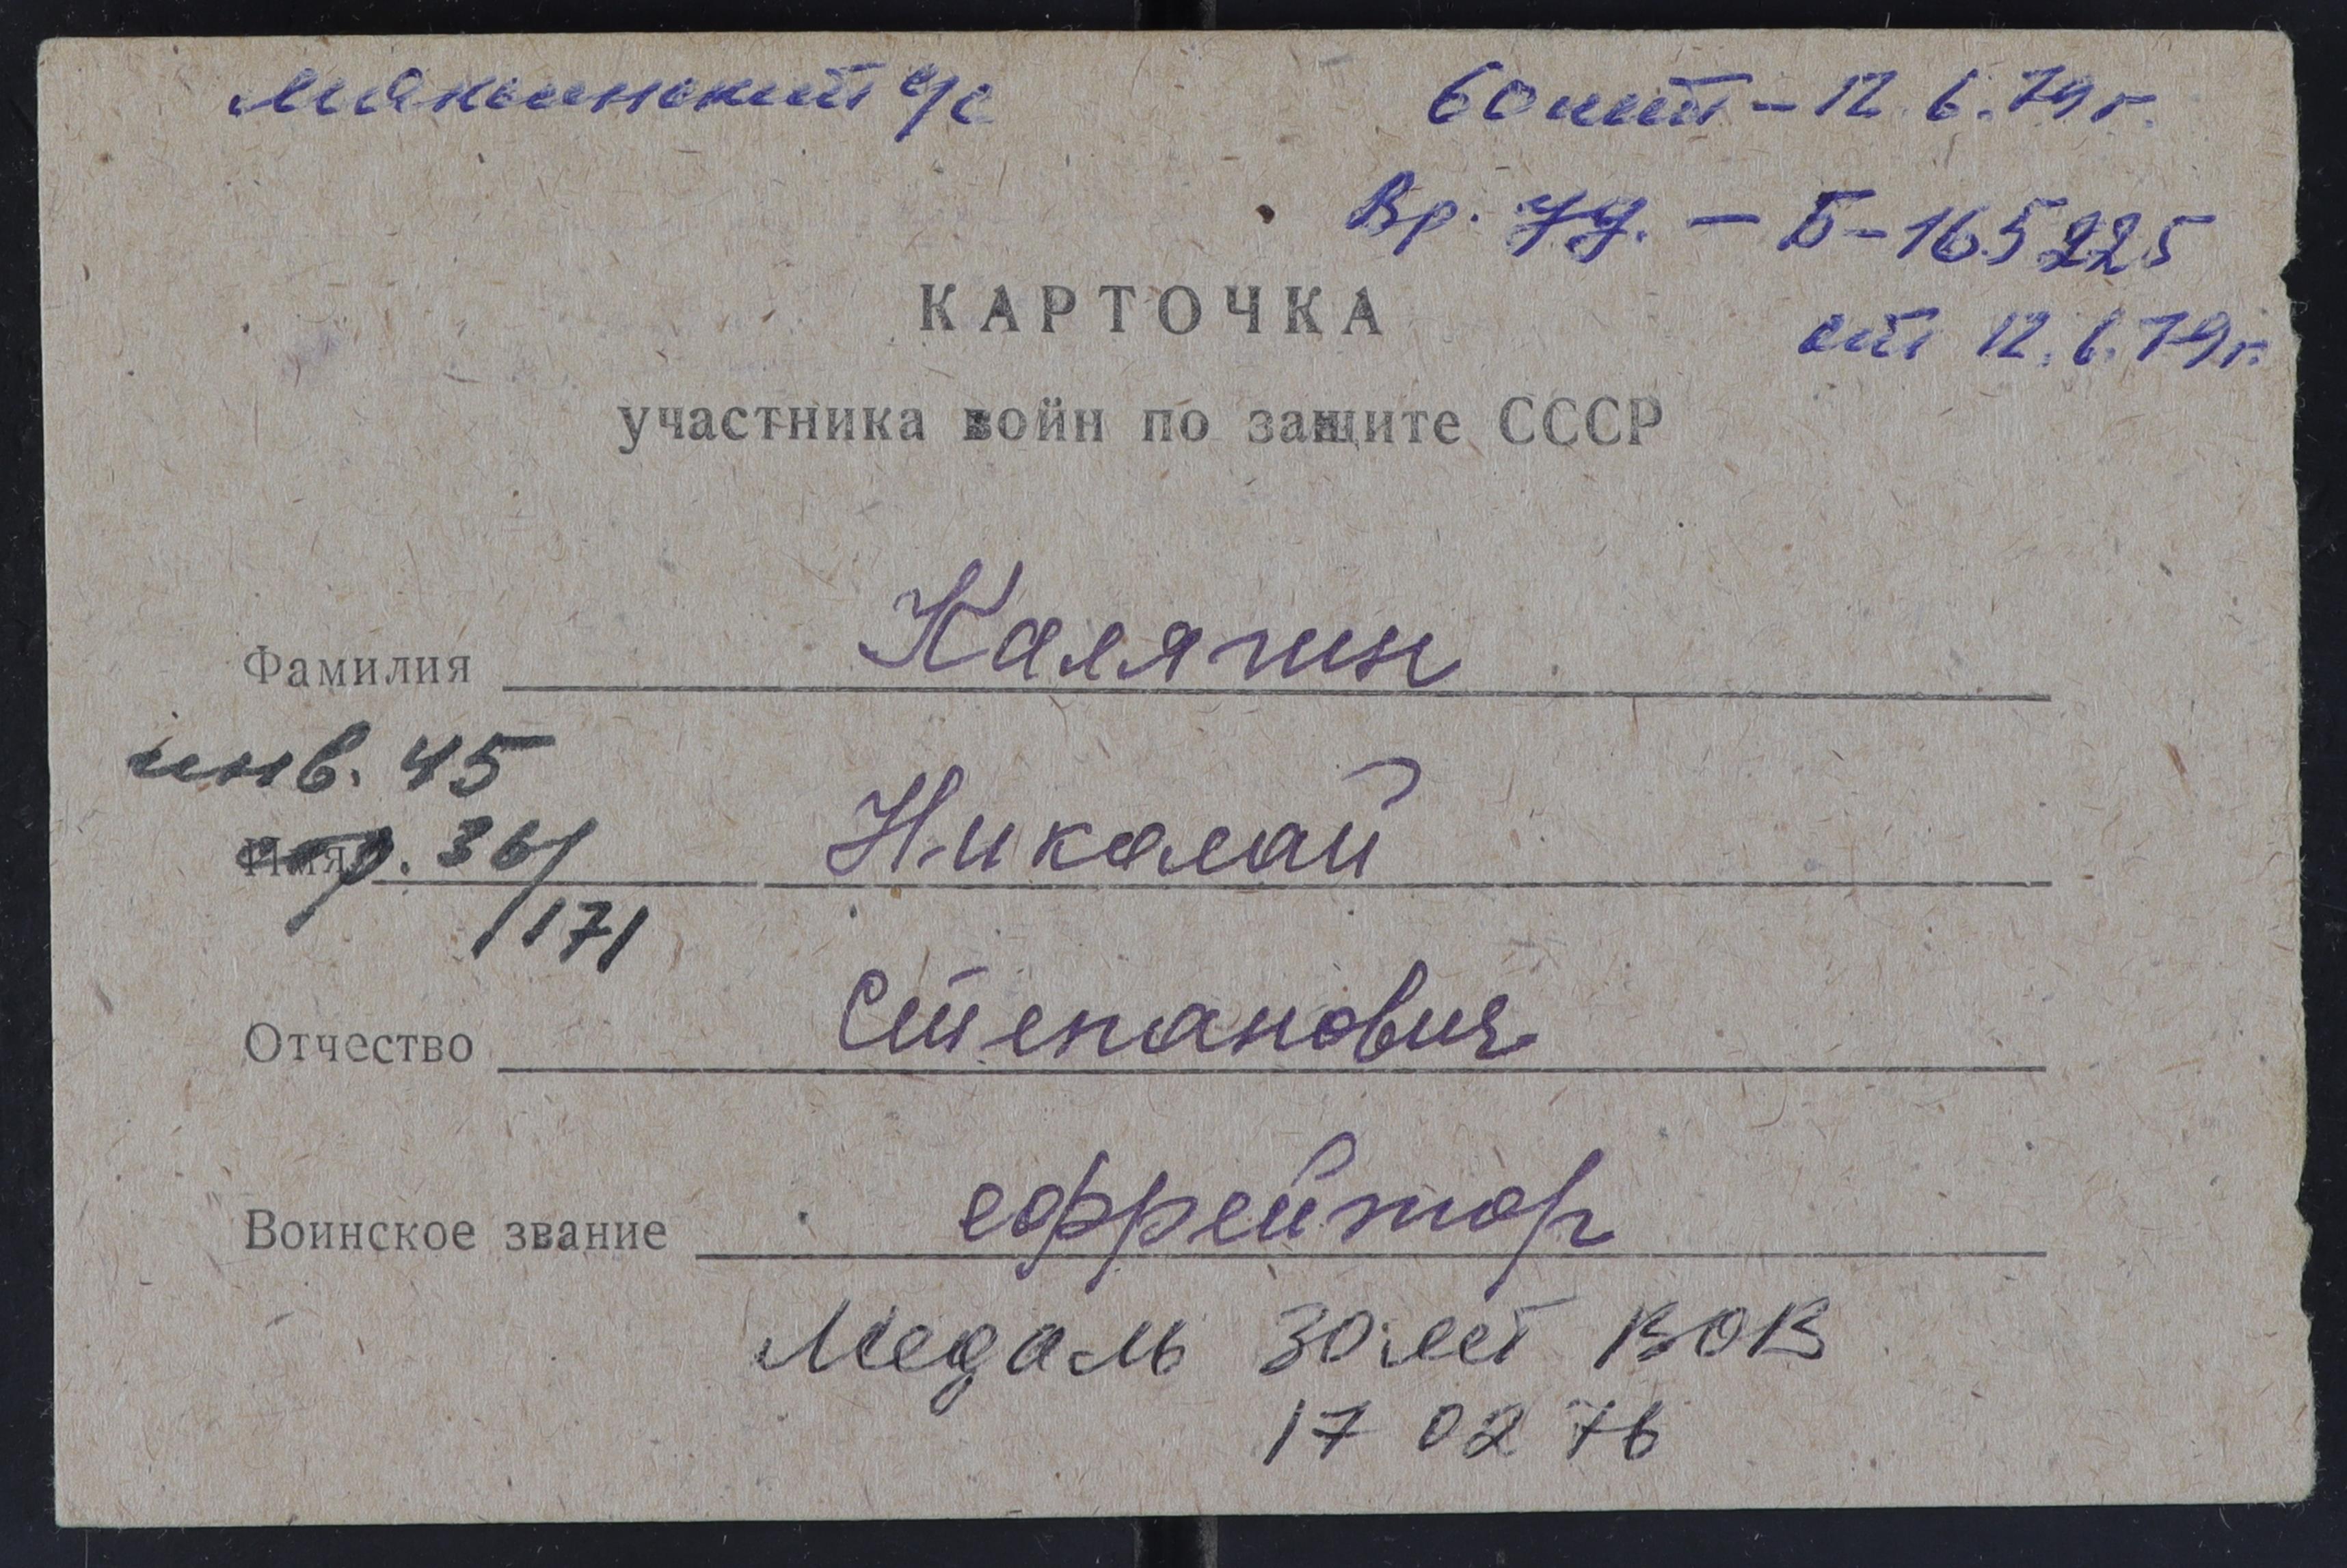 Мякшинский с/с
60 лит - 12.6.79 г.
Вр. уд. - Б-165225
от 12.6.79г.
КАРТОЧКА
участника войн по защите СССР
Фамилия Калягин
инв. 45
стр. 36/171
Имя Николай
Отчество Степанович
Воинское звание ефрейтор
Медаль 30 лет ВОВ
17 02 76